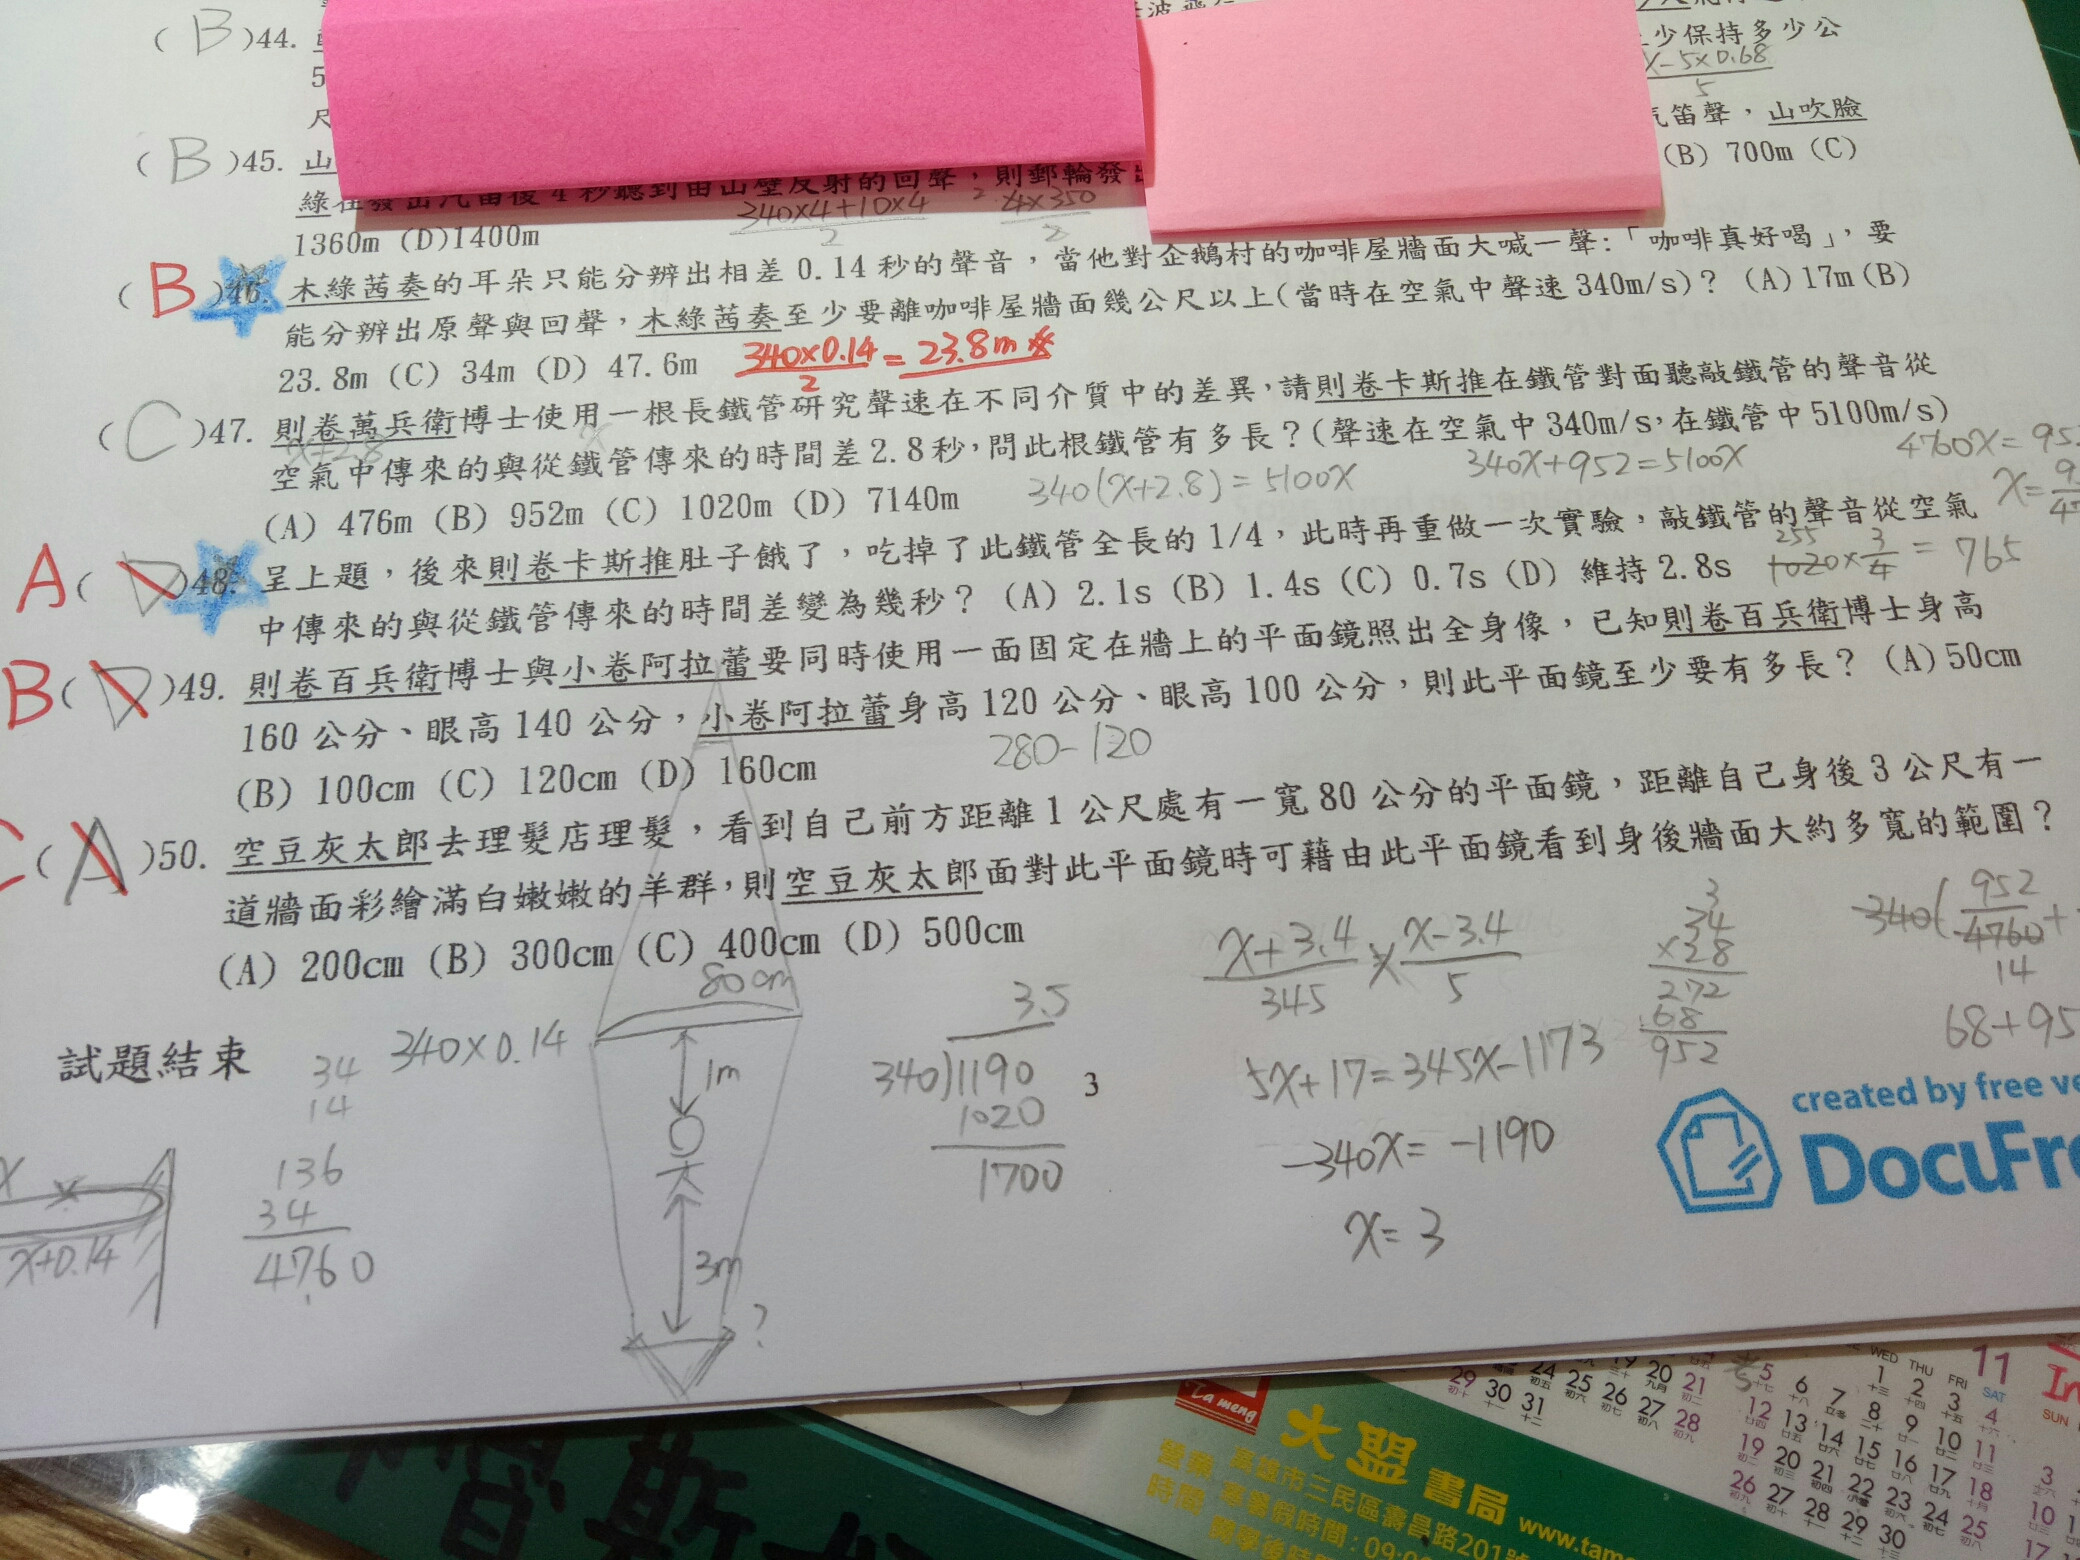 (B)44.
少保持多少公
x-5×0.68
5
5
尺
氣笛聲，山吹臉
(B)45. 山
(B) 700m (C)
綠在發出汽笛後4秒聽到由山壁反射的回聲，則郵輪發
340×4+10×4
2
4×350
2
1360m (D)1400m
(B)46. 木綠茜奏的耳朵只能分辨出相差0.14秒的聲音，當他對企鵝村的咖啡屋牆面大喊一聲:「咖啡真好喝」，要
能分辨出原聲與回聲，木綠茜奏至少要離咖啡屋牆面幾公尺以上(當時在空氣中聲速340m/s)? (A)17m(B)
23.8m (C) 34m (D) 47.6m
340×0.14
2
= 23.8m
(C)47. 則卷萬兵衛博士使用一根長鐵管研究聲速在不同介質中的差異，請則卷卡斯推在鐵管對面聽敲鐵管的聲音從
x+2.8
x
空氣中傳來的與從鐵管傳來的時間差2.8秒，問此根鐵管有多長？(聲速在空氣中340m/s，在鐵管中5100m/s)
(A) 476m (B) 952m (C) 1020m (D) 7140m
340(x+2.8)=5100x
340x+952=5100x
4760x=95
x=
A(D)48. 呈上題，後來則卷卡斯推肚子餓了，吃掉了此鐵管全長的1/4，此時再重做一次實驗，敲鐵管的聲音從空氣
中傳來的與從鐵管傳來的時間差變為幾秒？ (A) 2.1s (B) 1.4s (C) 0.7s (D) 維持2.8s
255
1020×3/4 = 765
B(D)49. 則卷百兵衛博士與小卷阿拉蕾要同時使用一面固定在牆上的平面鏡照出全身像，已知則卷百兵衛博士身高
160公分、眼高140公分，小卷阿拉蕾身高120公分、眼高100公分，則此平面鏡至少要有多長？ (A)50cm
(B) 100cm (C) 120cm (D) 160cm
280-120
C(A)50. 空豆灰太郎去理髮店理髮，看到自己前方距離1公尺處有一寬80公分的平面鏡，距離自己身後3公尺有一
道牆面彩繪滿白嫩嫩的羊群，則空豆灰太郎面對此平面鏡時可藉由此平面鏡看到身後牆面大約多寬的範圍？
(A) 200cm (B) 300cm (C) 400cm (D) 500cm
80cm
1m
3m
?
試題結束
340×0.14
34
14
136
34
4760
x
x+0.14
3.5
340)1190
1020
1700
3
x+3.4
345
x-3.4
5
5x+17=345x-1173
-340x=-1190
x=3
3
34
×28
272
68
952
340(
952
4760
+
14
68+95
created by free ve
DocuFre
Ta meng
大盟書局 www.tam
營業時間
高雄市三民區壽昌路201號
寒暑假時間:09:0
WED THU FRI SAT SUN
11
24 25 26 27 28
29 30 31
1 2 3 4
5 6 7 8 9 10 11
12 13 14 15 16 17 18
19 20 21 22 23 24 25
26 27 28 29 30